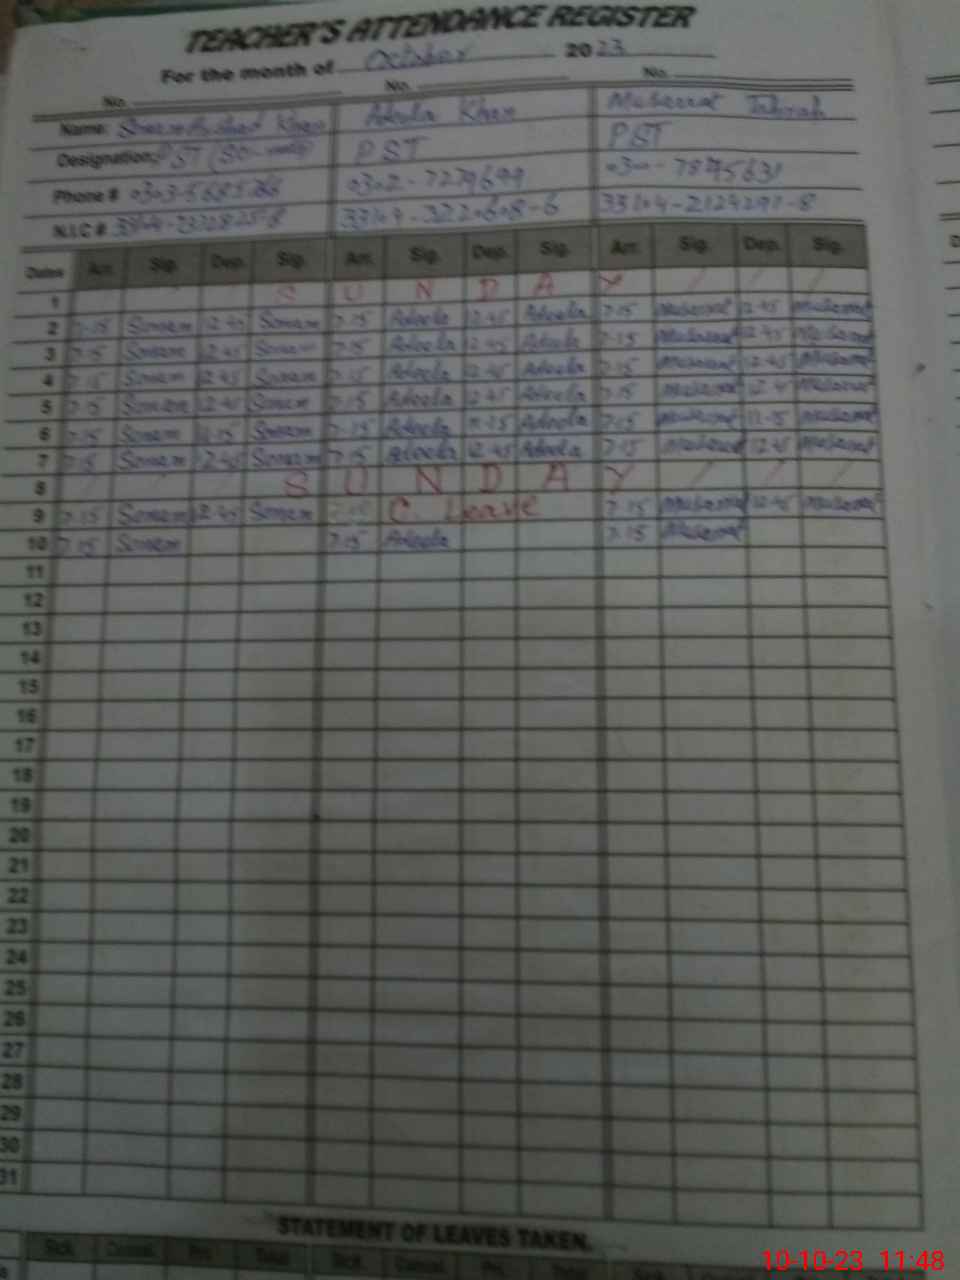 TEACHER'S ATTENDANCE REGISTER
For the month of October 2023
No. No. No.
Name: Khan Adeela Khan Musarrat Tahirah
Designation: PST PST PST
Phone # 0302-7279699
N.I.C #
Dates Arr. Sig. Dep. Sig. Arr. Sig. Dep. Sig. Arr. Sig. Dep. Sig.
1 S U N D A Y
2 7.15 Sonam 12.45 Sonam 7.15 Adeela 12.45 Adeela 7.15 Musarrat 12.45 Musarrat
3 7.15 Sonam 12.45 Sonam 7.15 Adeela 12.45 Adeela 7.15 Musarrat 12.45 Musarrat
4 7.15 Sonam 12.45 Sonam 7.15 Adeela 12.45 Adeela 7.15 Musarrat 12.45 Musarrat
5 7.15 Sonam 12.45 Sonam 7.15 Adeela 12.45 Adeela 7.15 Musarrat 12.45 Musarrat
6 7.15 Sonam 11.15 Sonam 7.15 Adeela 11.15 Adeela 7.15 Musarrat 11.15 Musarrat
7 7.15 Sonam 12.45 Sonam 7.15 Adeela 12.45 Adeela 7.15 Musarrat 12.45 Musarrat
8 S U N D A Y
9 7.15 Sonam 12.45 Sonam C Leave 7.15 Musarrat 12.45 Musarrat
10 7.15 Sonam 7.15 Adeela 7.15 Musarrat
11
12
13
14
15
16
17
18
19
20
21
22
23
24
25
26
27
28
29
30
31
STATEMENT OF LEAVES TAKEN.
Sick Casual
10-10-23 11:48